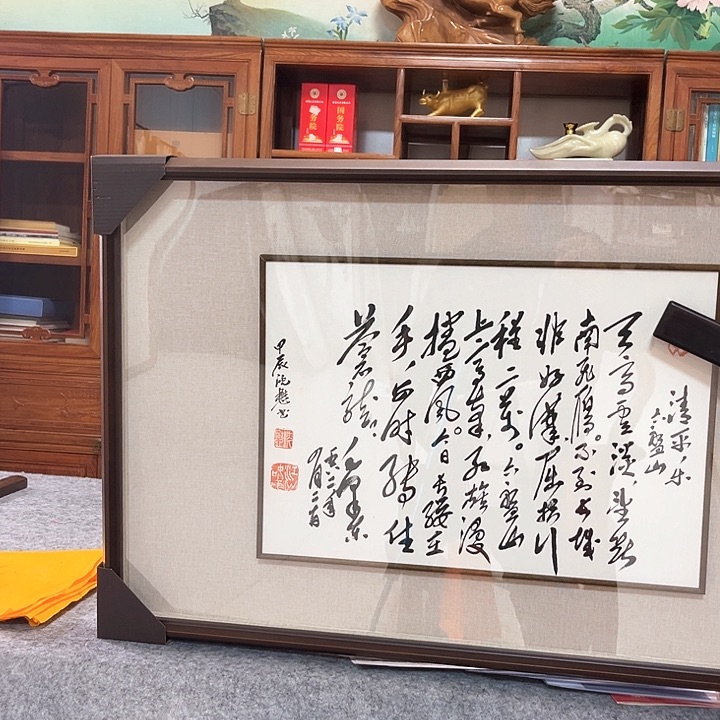 国务院
务院
清平乐
六盘山
天高云淡，望断
南飞雁。不到长城
非好漢，屈指行
程二萬。六盘山
上高峰，红旗漫
捲西风。今日长缨在
手，何时缚住
苍龙？
毛泽东
九月二十日
甲辰